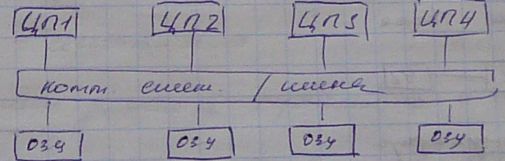 ЦП1 ЦП2 ЦП3 ЦП4
комм. сист. / шина
ОЗУ ОЗУ ОЗУ ОЗУ